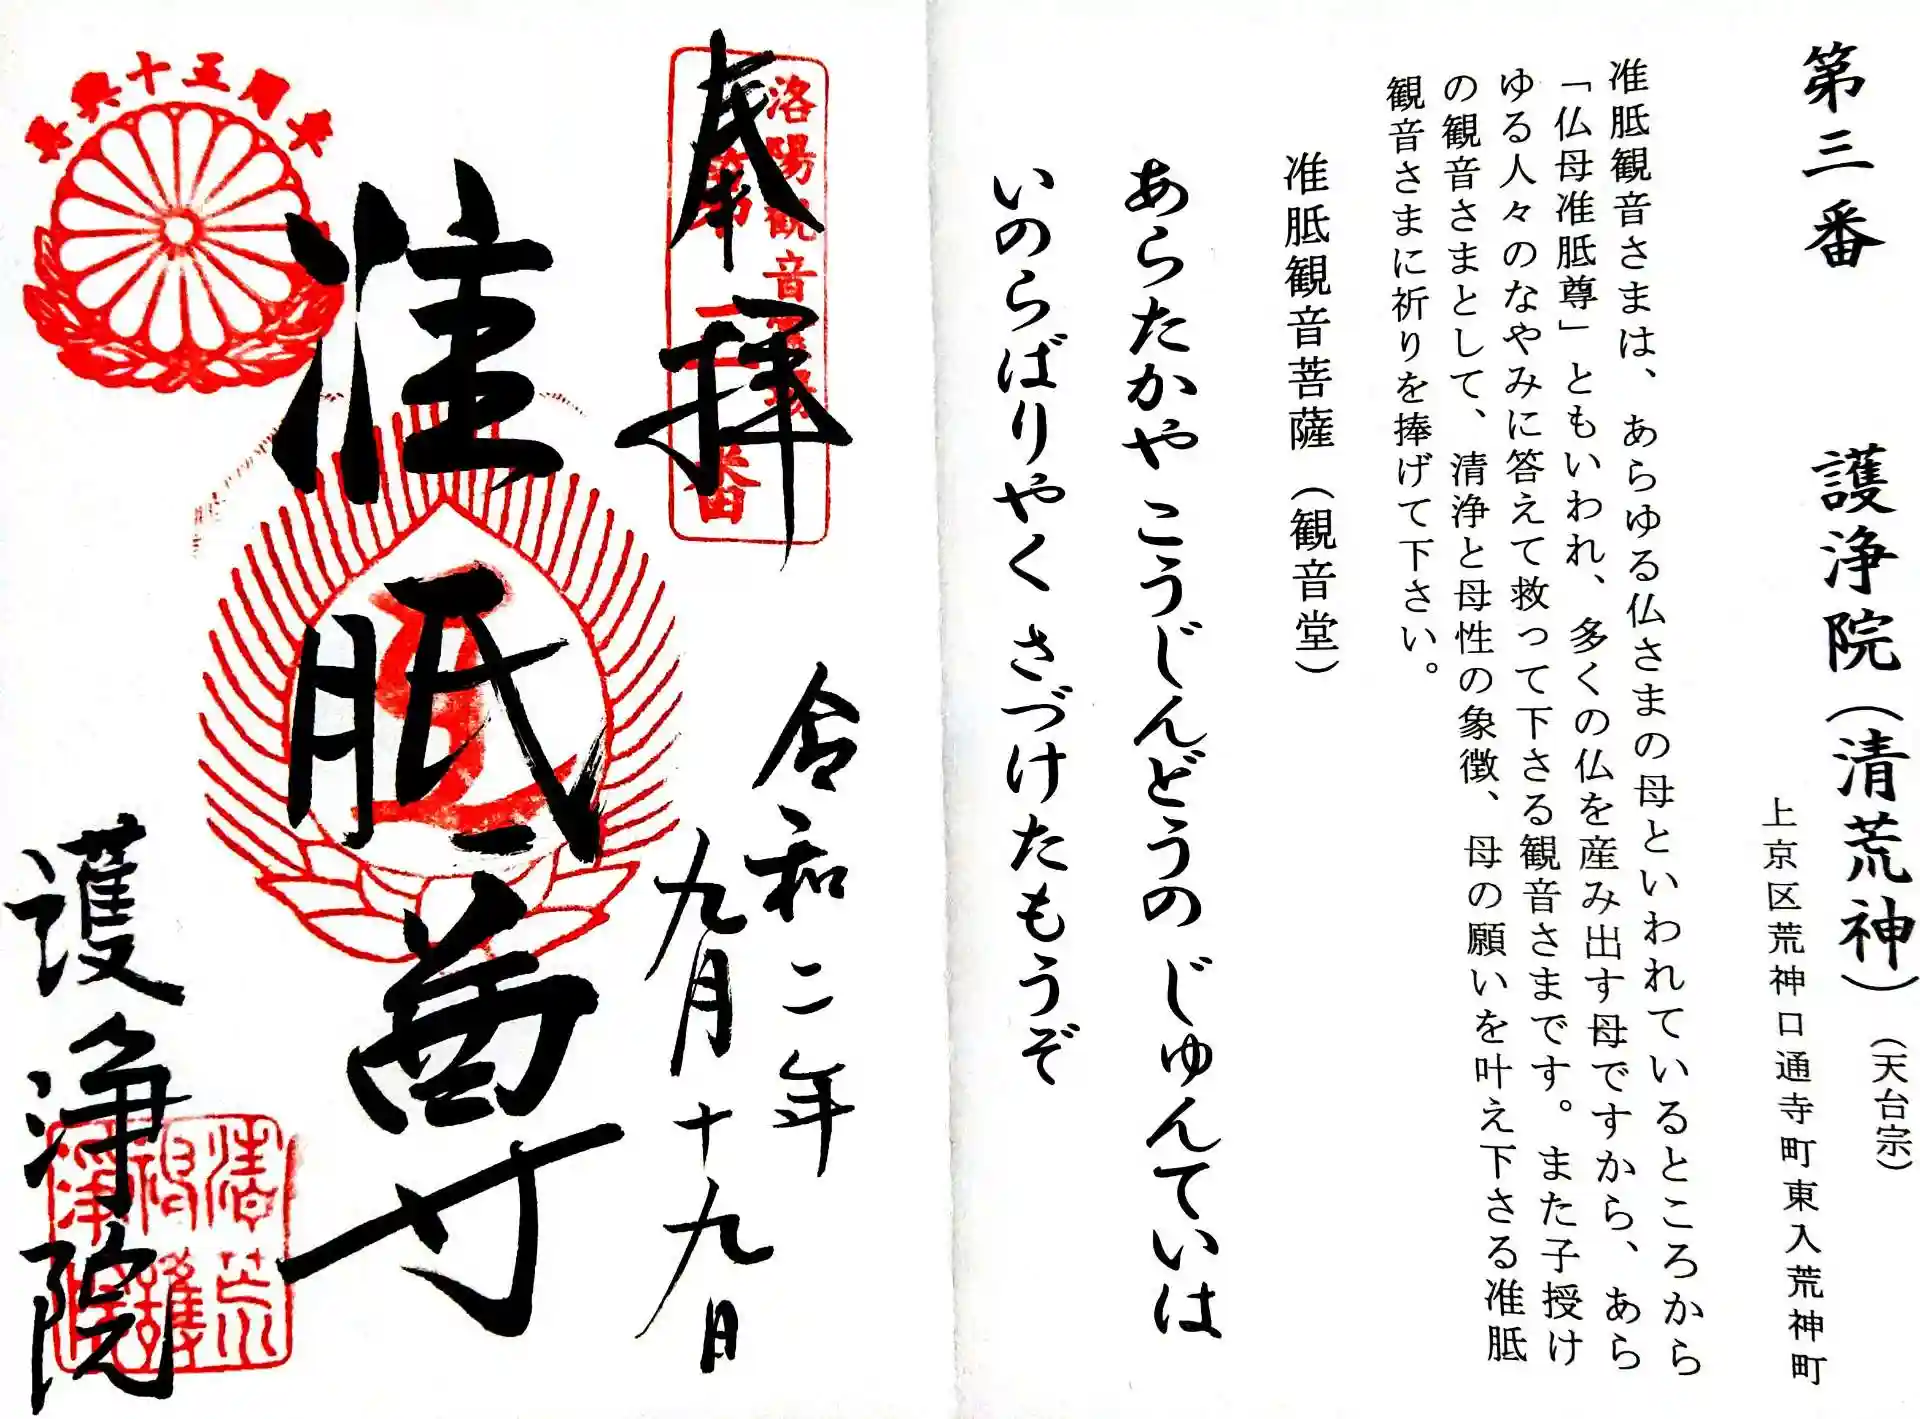 第三番 護浄院（清荒神）（天台宗）
上京区荒神口通寺町東入荒神町
准胝観音さまは、あらゆる仏さまの母といわれているところから
「仏母准胝尊」ともいわれ、多くの仏を産み出す母ですから、あら
ゆる人々のなやみに答えて救って下さる観音さまです。また子授け
の観音さまとして、清浄と母性の象徴、母の願いを叶え下さる准胝
観音さまに祈りを捧げて下さい。
准胝観音菩薩（観音堂）
あらたかや こうじんどうの じゅんていは
いのらばりやく さづけたもうぞ
奉拝
洛陽観音霊場
第三番
令和二年
九月十九日
准胝尊
護浄院
十五周
清荒
神護
浄院